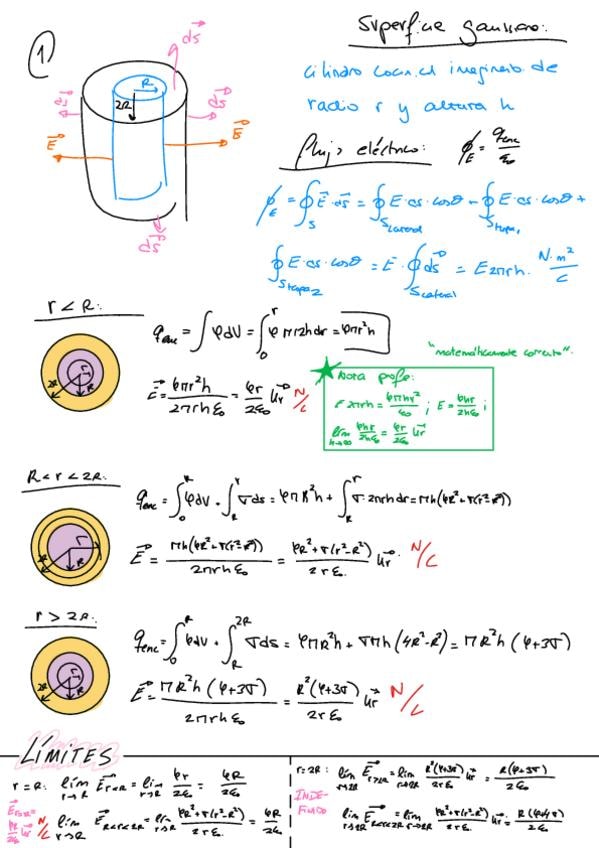 1)
Superficie gaussiana:
cilindro coaxial imaginario de
radio r y altura h
Flujo eléctrico: ϕ_E = q_enc/ε₀
ds
ds
ds
ds
R
2R
E
E
ϕ_E = ∮_S E·ds = ∮_S lateral E·ds·cosθ + ∮_S tapa1 E·ds·cosθ +
∮_S tapa2 E·ds·cosθ = E·∮_S lateral ds = E2πrh. N·m²/C
r < R:
q_enc = ∫φdV = ∫₀^r φπr2hdr = φπr²h
E = φπr²h/2πrhε₀ = φr/2ε₀ ur N/C
"matemáticamente correcto".
Nota profe:
E2πrh = φπhr²/ε₀ ; E = φhr/2hε₀ ;
lim h→∞ φhr/2hε₀ = φr/2ε₀ ur
R < r < 2R:
q_enc = ∫₀^R φdv + ∫_R^r σds = φπR²h + ∫_R^r σ·2πrhdr = πh(φR²+σ(r²-R²))
E = πh(φR²+σ(r²-R²))/2πrhε₀ = φR²+σ(r²-R²)/2rε₀ ur N/C
r > 2R:
q_enc = ∫₀^R φdv + ∫_R^2R σds = φπR²h + σπh(4R²-R²) = πR²h(φ+3σ)
E = πR²h(φ+3σ)/2πrhε₀ = R²(φ+3σ)/2rε₀ ur N/C
LÍMITES
r=R: lim r→R E r<R = lim r→R φr/2ε₀ = φR/2ε₀
lim r→R E R<r<2R = lim r→R φR²+σ(r²-R²)/2rε₀ = φR/2ε₀
E r=R = φR/2ε₀ ur N/C
r=2R: lim r→2R E r>2R = lim r→2R R²(φ+3σ)/2rε₀ ur = R(φ+3σ)/2ε₀
INDEFINIDO
lim r→2R E R<r<2R = lim r→2R φR²+σ(r²-R²)/2rε₀ ur =